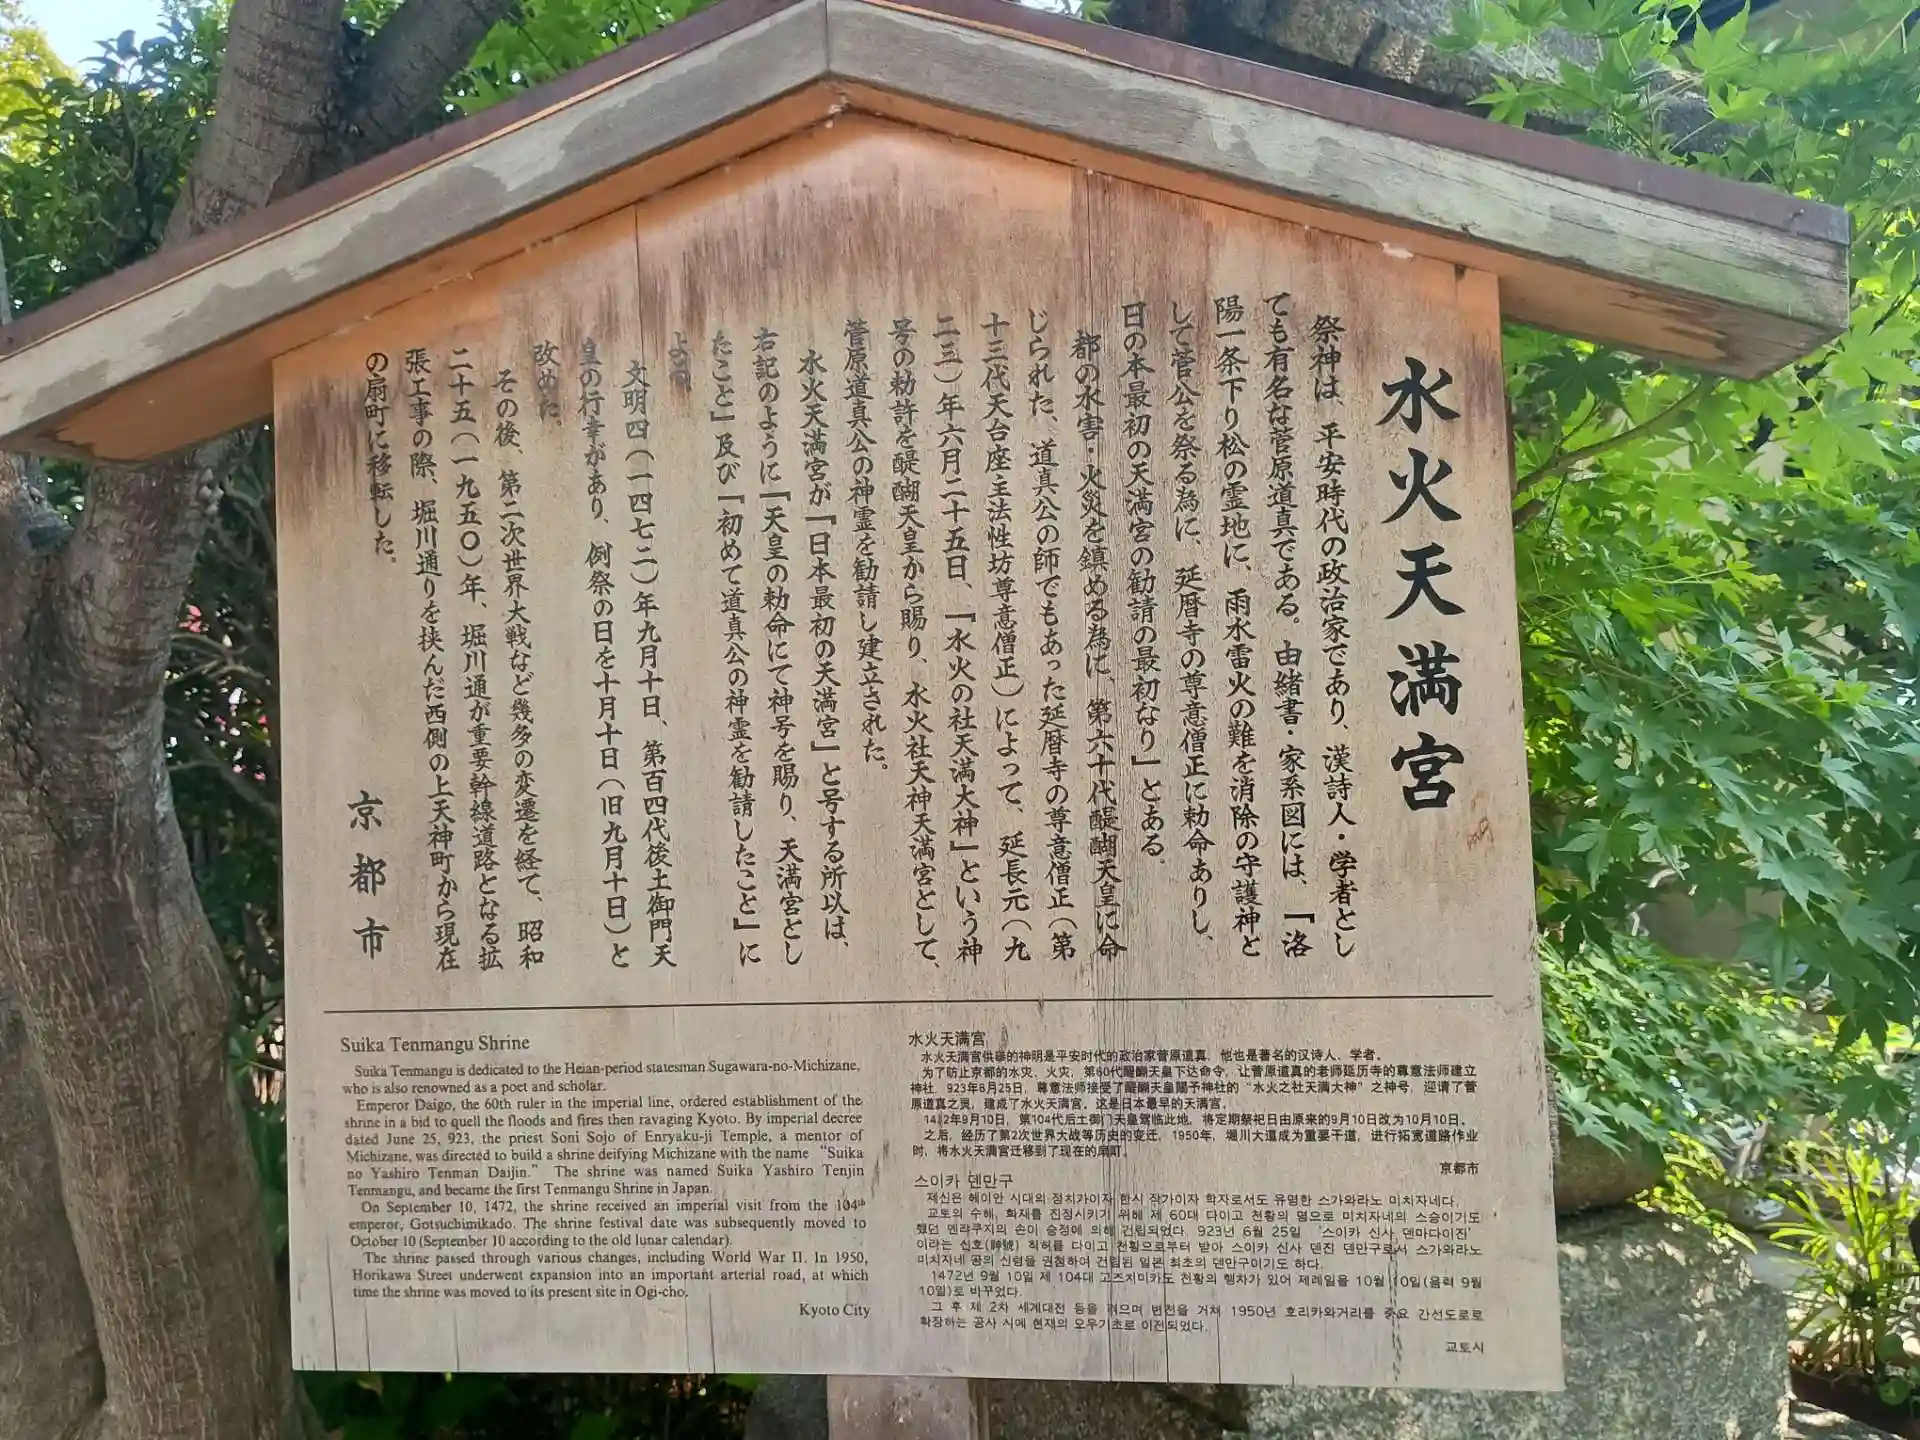 水火天満宮
祭神は、平安時代の政治家であり、漢詩人・学者とし
ても有名な菅原道真である。由緒書・家系図には、「洛
陽一条下り松の霊地に、雨水雷火の難を消除の守護神と
して菅公を祭る為に、延暦寺の尊意僧正に勅命ありし、
日の本最初の天満宮の勧請の最初なり」とある。
都の水害・火災を鎮める為に、第六十代醍醐天皇に命
じられた、道真公の師でもあった延暦寺の尊意僧正(第
十三代天台座主法性坊尊意僧正)によって、延長元(九
二三)年六月二十五日、「水火の社天満大神」という神
号の勅許を醍醐天皇から賜り、水火社天神天満宮として、
菅原道真公の神霊を勧請し建立された。
水火天満宮が「日本最初の天満宮」と号する所以は、
右記のように「天皇の勅命にて神号を賜り、天満宮とし
たこと」及び「初めて道真公の神霊を勧請したこと」に
よる。
文明四(一四七二)年九月十日、第百四代後土御門天
皇の行幸があり、例祭の日を十月十日(旧九月十日)と
改めた。
その後、第二次世界大戦など幾多の変遷を経て、昭和
二十五(一九五〇)年、堀川通が重要幹線道路となる拡
張工事の際、堀川通りを挟んだ西側の上天神町から現在
の扇町に移転した。
京都市
Suika Tenmangu Shrine
Suika Tenmangu is dedicated to the Heian-period statesman Sugawara-no-Michizane,
who is also renowned as a poet and scholar.
Emperor Daigo, the 60th ruler in the imperial line, ordered establishment of the
shrine in a bid to quell the floods and fires then ravaging Kyoto. By imperial decree
dated June 25, 923, the priest Soni Sojo of Enryaku-ji Temple, a mentor of
Michizane, was directed to build a shrine deifying Michizane with the name “Suika
no Yashiro Tenman Daijin.” The shrine was named Suika Yashiro Tenjin
Tenmangu, and became the first Tenmangu Shrine in Japan.
On September 10, 1472, the shrine received an imperial visit from the 104th
emperor, Gotsuchimikado. The shrine festival date was subsequently moved to
October 10 (September 10 according to the old lunar calendar).
The shrine passed through various changes, including World War II. In 1950,
Horikawa Street underwent expansion into an important arterial road, at which
time the shrine was moved to its present site in Ogi-cho.
Kyoto City
水火天满宫
水火天满宫供奉的神明是平安时代的政治家菅原道真，他也是著名的汉诗人、学者。
为了防止京都的水灾、火灾，第60代醍醐天皇下达命令，让菅原道真的老师延历寺的尊意法师建立
神社。923年6月25日，尊意法师接受了醍醐天皇赐予神社的“水火之社天满大神”之神号，迎请了菅
原道真之灵，建成了水火天满宫。这是日本最早的天满宫。
1472年9月10日，第104代后土御门天皇驾临此地，将定期祭祀日由原来的9月10日改为10月10日。
之后，经历了第2次世界大战等历史的变迁，1950年，堀川大道成为重要干道，进行拓宽道路作业
时，将水火天满宫迁移到了现在的扇町。
京都市
스이카 덴만구
제신은 헤이안 시대의 정치가이자 한시 작가이자 학자로서도 유명한 스가와라노 미치자네다.
교토의 수해, 화재를 진정시키기 위해 제 60대 다이고 천황의 명으로 미치자네의 스승이기도
했던 엔랴쿠지의 손이 승정에 의해 건립되었다. 923년 6월 25일 '스이카 신사 덴마다이진'
이라는 신호(神號) 칙허를 다이고 천황으로부터 받아 스이카 신사 덴진 덴만구로서 스가와라노
미치자네 공의 신령을 권청하여 건립된 일본 최초의 덴만구이기도 하다.
1472년 9월 10일 제 104대 고츠치미카도 천황의 행차가 있어 제례일을 10월 10일(음력 9월
10일)로 바꾸었다.
그 후 제 2차 세계대전 등을 겪으며 변천을 거쳐 1950년 호리카와거리를 중요 간선도로로
확장하는 공사 시에 현재의 오우기초로 이전되었다.
교토시